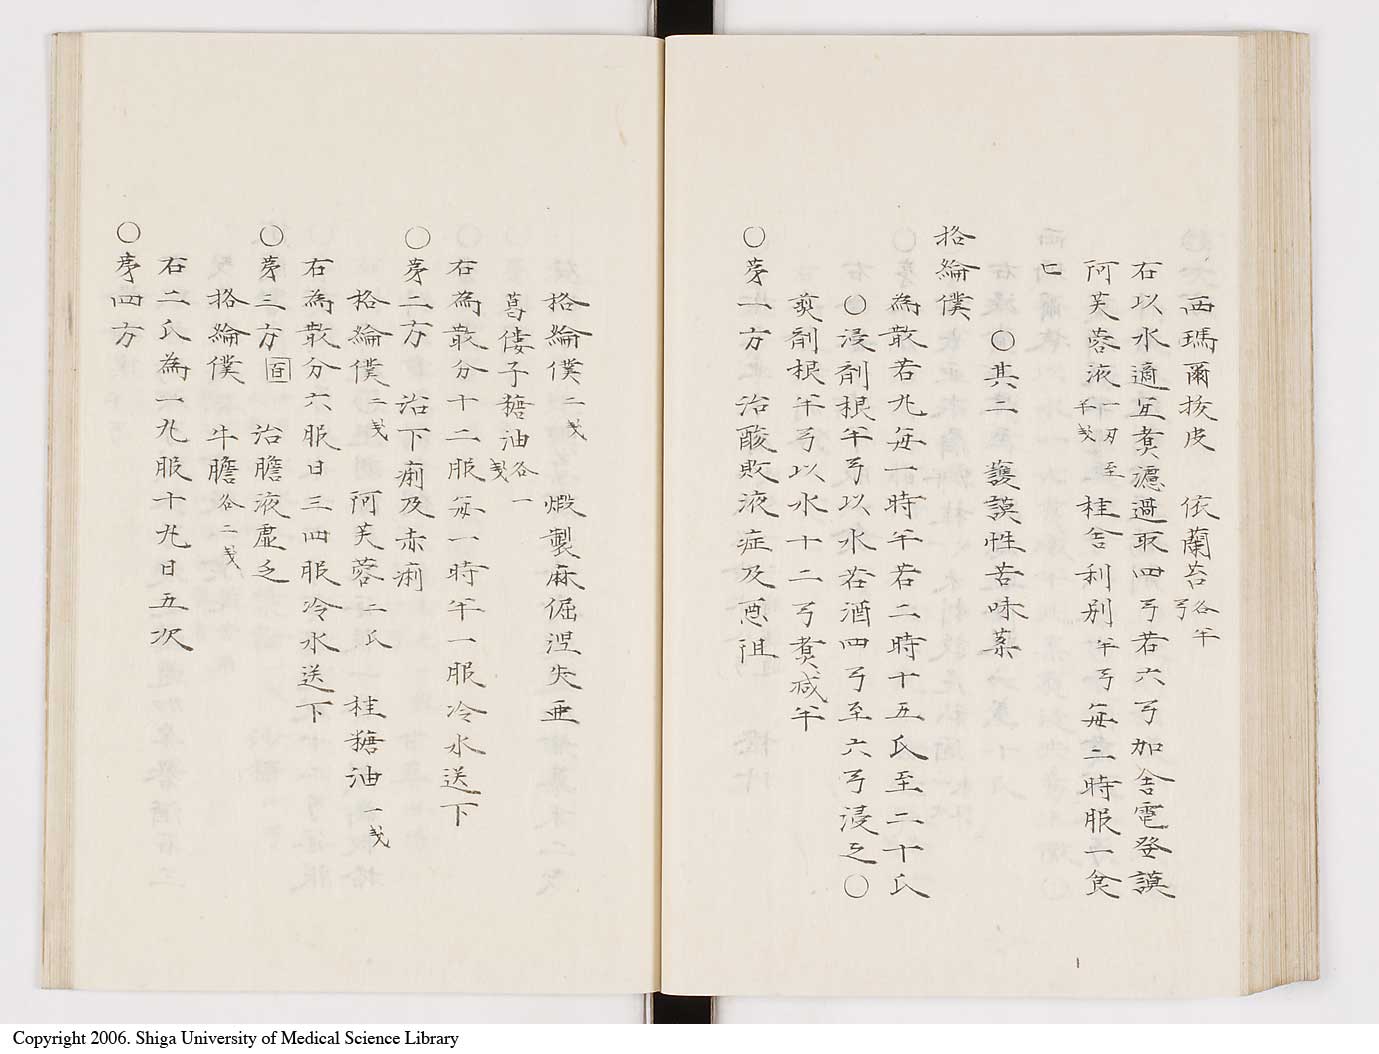 西瑪爾抜皮　依蘭苔各半弓
右以水適宜煮濾過取四弓若六弓加舎電癹謨
阿芙蓉液一刃至半戔　桂舎利別半弓毎二時服一食
匕
○其二　護謨性苦味薬
格綸僕
為散若丸毎一時半若二時十五氏至二十氏
○浸剤根半弓以水若酒四弓至六弓浸之○
煎剤根半弓以水十二弓煮减半
○苐一方　治酸敗液症及悪阻
格綸僕二戔　煅製麻倔涅失亜
菖僂子糖油各一戔
右為散分十二服毎一時半一服冷水送下
○苐二方　治下痢及赤痢
格綸僕二戔　阿芙蓉二氏　桂糖油一戔
右為散分六服日三四服冷水送下
○苐三方 百 治膽液虚乏
格綸僕　牛膽各二戔
右二氏為一丸服十丸日五次
○苐四方
Copyright 2006. Shiga University of Medical Science Library